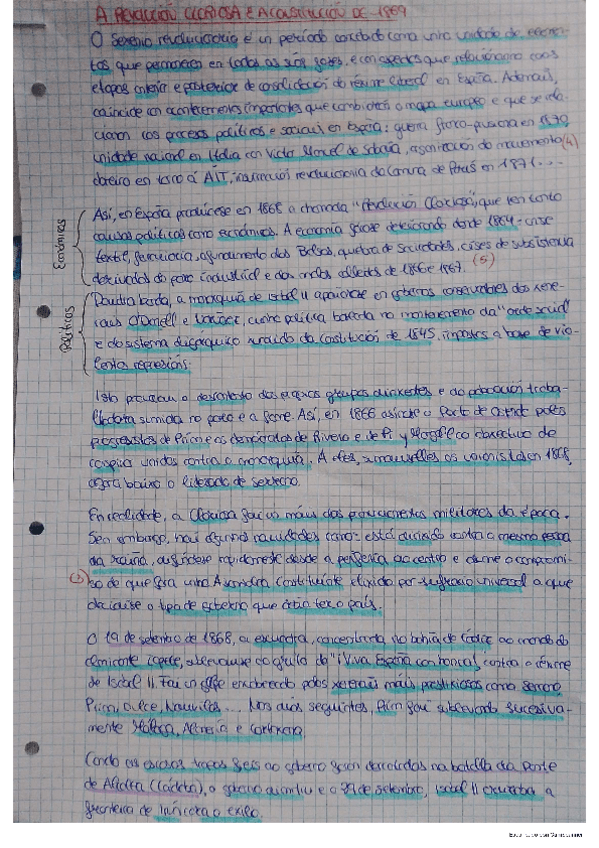 A REVOLUCIÓN GLORIOSA E A CONSTITUCIÓN DE 1869
O Sexenio revolucionario é un período concibido como unha unidade de
tos que permanecen en todas as súas fases, e con aspectos que relaciónano coas
etapas anterior e posterior de consolidación do réxime liberal en España. Ademais,
coincide con acontecementos importantes que cambiotará o mapa europeo e que se rela-
cionan cos procesos políticos e sociais en España: guerra franco-prusiana en 1870
unidade nacional en Italia con Victor Manuel de Saboia, a organización do movemento (4)
obreiro en torno á AIT, insurrección revolucionaria da Comuna de París en 1871...
Económicas
Así, en España prodúcese en 1868 a chamada "Revolución Gloriosa", que ten tanto
causas políticas como económicas. A economía foise deteriorando dende 1864: crise
textil, ferroviaria, afundamento das Bolsas, quebra de sociedades, crises de subsistencia
derivadas do paro industrial e das malas colleitas de 1866 e 1867. (5)
Políticas
Doutra banda, a monarquía de Isabel II apoiarase en gobernos conservadores dos xene-
rais O'Donell e Narváez, cunha política baseada no mantemento da "orde social"
e do sistema oligárquico nacido da constitución de 1845, impostos a base de vio-
lenta represión.
Isto provocou o descontento dos grupos dirixentes e da poboación traba-
lladora sumida no paro e a fame. Así, en 1866 asínase o Pacto de Ostende polos
progresistas de Prim e os demócratas de Rivero e de Pi y Margall co obxectivo de
conspirar unidos contra a monarquía. A eles, os unionistas en 1868,
agora baixo o liderado de Serrano.
En realidade, a Gloriosa foi un máis dos pronunciamentos militares da época.
Sen embargo, hai algunhas novidades como: está dirixido contra a mesma persoa
da raíña, difúndese rapidamente desde a periferia ao centro e asume o compromi-
(3) so de que fora unha Asamblea Constituínte elixida por sufraxio universal a que
decidise o tipo de goberno que debía ter o país.
O 19 de setembro de 1868, a escuadra, concentrada na bahía de Cádiz ao mando do
almirante Topete, sublevouse ao grito de "¡Viva España con honra!, contra o réxime
de Isabel II. Foi un golpe encabezado polos xenerais máis prestixiosos como Serrano,
Prim, Dulce, Nouvilas... Nos días seguintes, Prim foi sublevando sucesiva-
mente Málaga, Almería e Cartaxena.
Cando as escasas tropas fieis ao goberno foron derrotadas na batalla da Ponte
de Alcolea (Córdoba), o goberno dimitiu e o de setembro, Isabel II cruzaba a
fronteira de Francia cara o exilio.